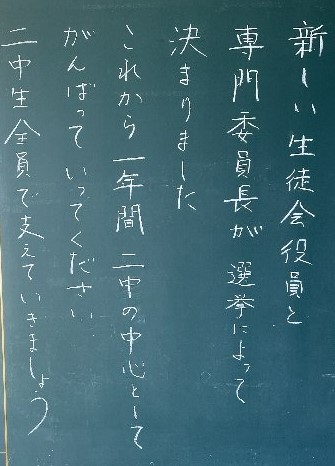 新しい生徒会役員と
専門委員長が 選挙によって
決まりました
これから一年間 二中の中心として
がんばって いってください
二中生全員で支えていきましょう